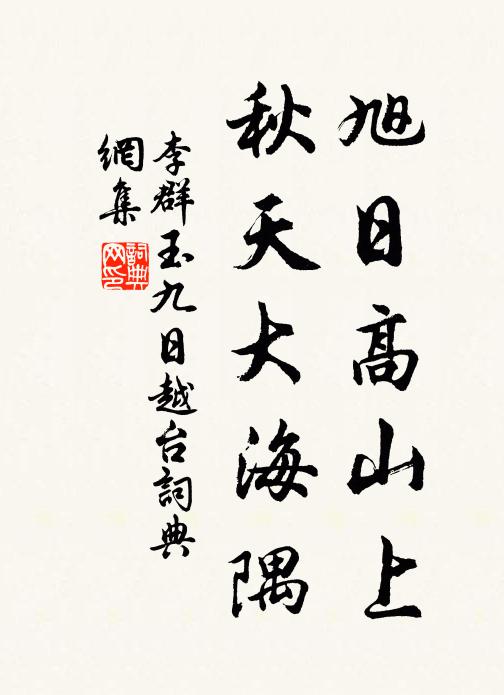 旭日高山上
秋天大海隅
李群玉九日越台詞典
網集
詞典网印